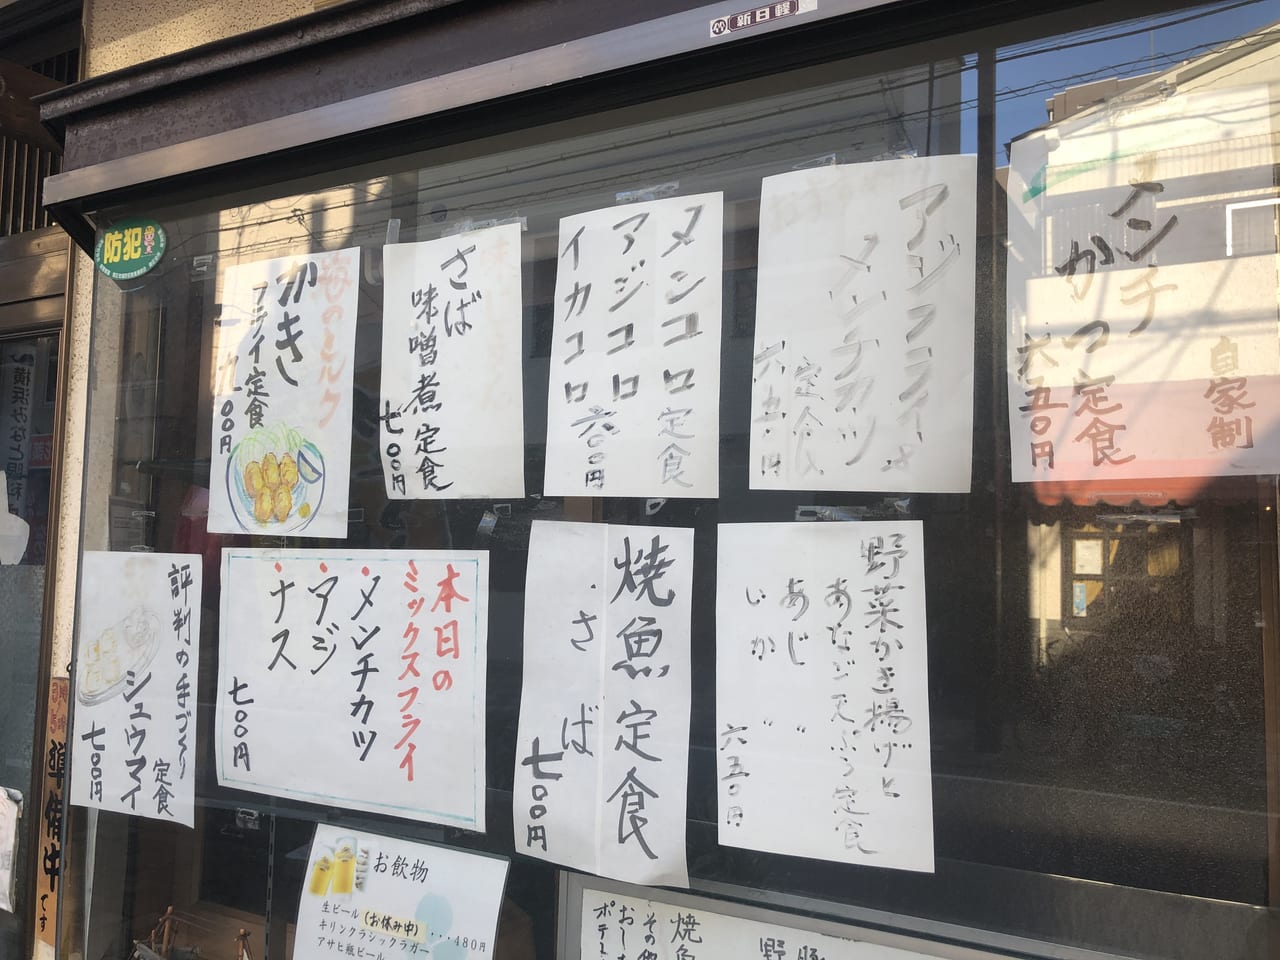 新日軽
防犯
メンチ
かつ定食
六五〇円
自家製
アジフライと
メンチカツ
定食
六五〇円
メンコロ定食
アジコロ
イカコロ
六〇〇円
さば
味噌煮定食
七〇〇円
海のミルク
かき
フライ定食
九〇〇円
野菜かき揚げと
あなご天ぷら定食
あじ 〃
いか 〃
六五〇円
焼魚定食
・さば
七〇〇円
本日の
ミックスフライ
・メンチカツ
・アジ
・ナス
七〇〇円
評判の手づくり
シュウマイ
定食
七〇〇円
お飲物
生ビール(お休み中)
キリンクラシックラガー
・・・480円
アサヒ瓶ビール
焼魚
その他
準備中です